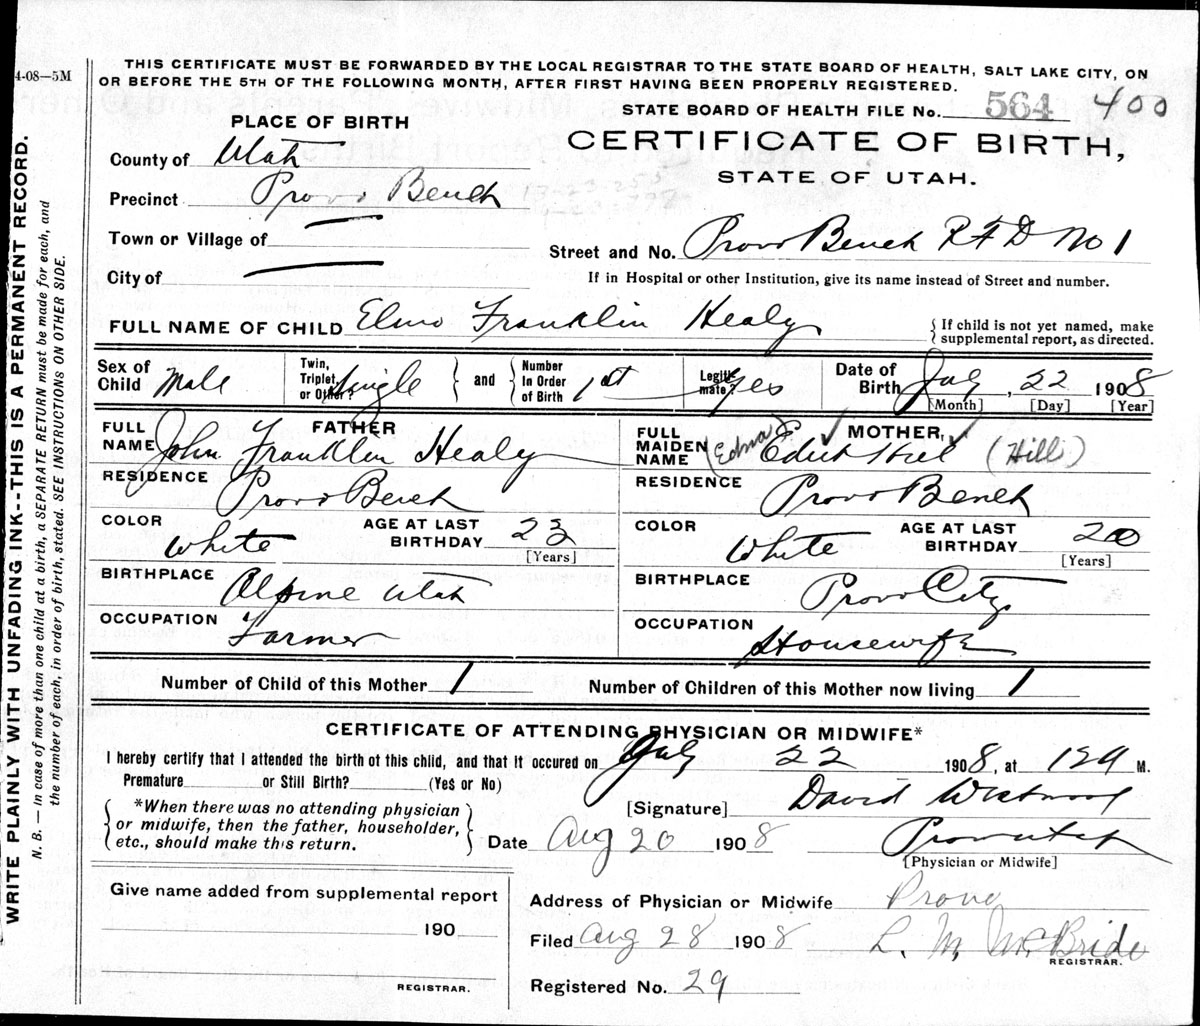 4-08—5M
THIS CERTIFICATE MUST BE FORWARDED BY THE LOCAL REGISTRAR TO THE STATE BOARD OF HEALTH, SALT LAKE CITY, ON
OR BEFORE THE 5TH OF THE FOLLOWING MONTH, AFTER FIRST HAVING BEEN PROPERLY REGISTERED.
STATE BOARD OF HEALTH FILE No. 564 400
PLACE OF BIRTH
CERTIFICATE OF BIRTH,
STATE OF UTAH.
County of Utah
Precinct Provo Bench
Town or Village of
Street and No. Provo Bench R F D No 1
City of
If in Hospital or other Institution, give its name instead of Street and number.
FULL NAME OF CHILD Elmo Franklin Healy
{ If child is not yet named, make
supplemental report, as directed.
Sex of Child Male
Twin, Triplet, or Other? Single } and { Number In Order of Birth 1st
Legitimate? Yes
Date of Birth July, 22 1908
[Month] [Day] [Year]
FATHER
FULL NAME John Franklin Healy
RESIDENCE Provo Bench
COLOR White
AGE AT LAST BIRTHDAY 23
[Years]
BIRTHPLACE Alpine Utah
OCCUPATION Farmer
MOTHER,
FULL MAIDEN NAME (Edna) (Hill)
RESIDENCE Provo Bench
COLOR White
AGE AT LAST BIRTHDAY 20
[Years]
BIRTHPLACE Provo City
OCCUPATION Housewife
Number of Child of this Mother 1
Number of Children of this Mother now living 1
CERTIFICATE OF ATTENDING PHYSICIAN OR MIDWIFE*
I hereby certify that I attended the birth of this child, and that it occured on July 22 1908, at M.
Premature or Still Birth? (Yes or No)
{ *When there was no attending physician
or midwife, then the father, householder,
etc., should make this return. }
[Signature] David Westwood
Date Aug 20 1908
Provo Utah
[Physician or Midwife]
Give name added from supplemental report
190
REGISTRAR.
Address of Physician or Midwife Provo
Filed Aug 28 1908 L. M. McBride
REGISTRAR.
Registered No. 29
WRITE PLAINLY WITH UNFADING INK--THIS IS A PERMANENT RECORD.
N. B. — In case of more than one child at a birth, a SEPARATE RETURN must be made for each, and
the number of each, in order of birth, stated. SEE INSTRUCTIONS ON OTHER SIDE.